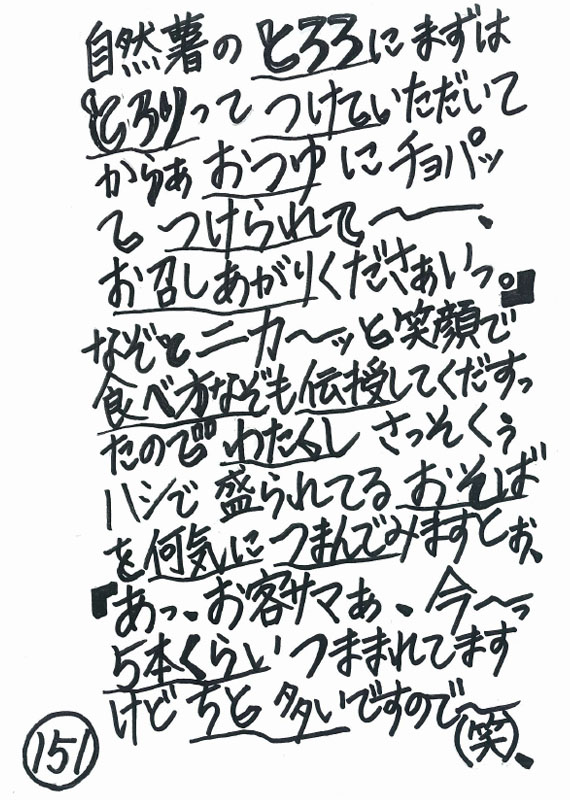 自然薯のとろろにまずは
とろりってつけていただいて
からぁおつゆにチョパッ
てつけられて〜、
お召しあがりくださぁいっ。』
なぞとニカ〜ッと笑顔で
食べ方なぞも伝授してくだすっ
たのでわたくしさっそくぅ
ハシで盛られてるおそば
を何気につまんでみますとぉ、
『あっ、お客サマぁ、今〜っ
5本くらいつままれてます
けどちと多いですので〜(笑)、
151